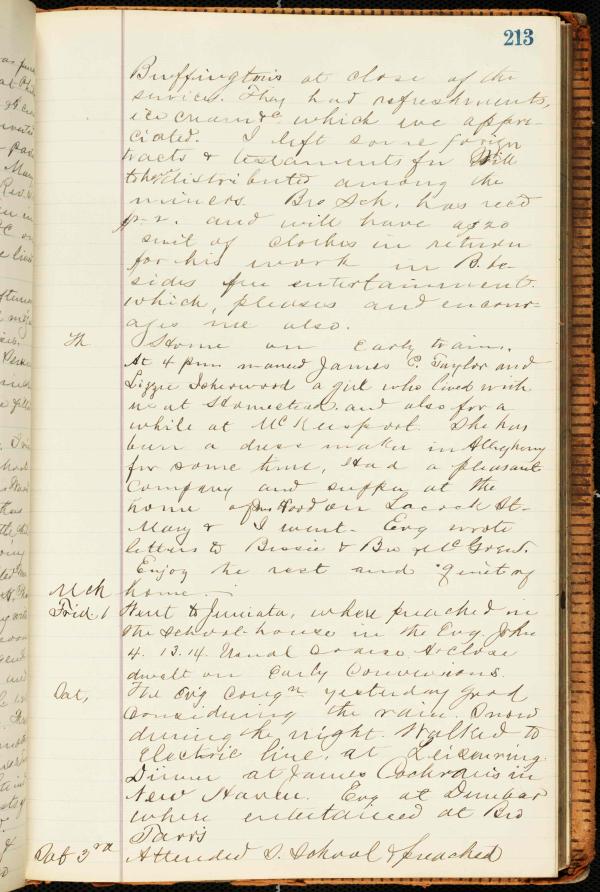 213
Buffingtons at close of the
service. They had refreshments,
ice cream &c which we appre-
ciated. I left some forign
tracts & testaments for Will
distributed among the
miners. Bro Sch. has recd
and will have a $20
suit of clothes in return
for his work in B. be-
sides free entertainment.
which, pleases and encour-
ages me also.
Th Home on early train.
At 4 p.m. maried James C. Taylor and
Lizzie Isherwood a girl who lived with
us at Homestead and also for a
while at McKeesport. She has
been a dress maker in Allegheny
for some time, Had a pleasant
company and supper at the
home of Jno Hood on Lacock St-
Mary & I went. Evg wrote
letters to Bessie & Bro McGrew.
Enjoy the rest and quiet of
Mch home.
Frid. 1 Went to Juniata, where preached in
the school-house in the Evg. John
4. 13.14. Usual At close
dwelt on Early Conversions.
Sat, The Evg congn yesterday good
considering the rain. Snow
during the night. Walked to
Electric line, at Leisenring.
Dinner at James Cochrans in
New Haven. Evg at Dunbar
where entertained at Bro
Tarrs
Sab 3rd Attended S. School & preached